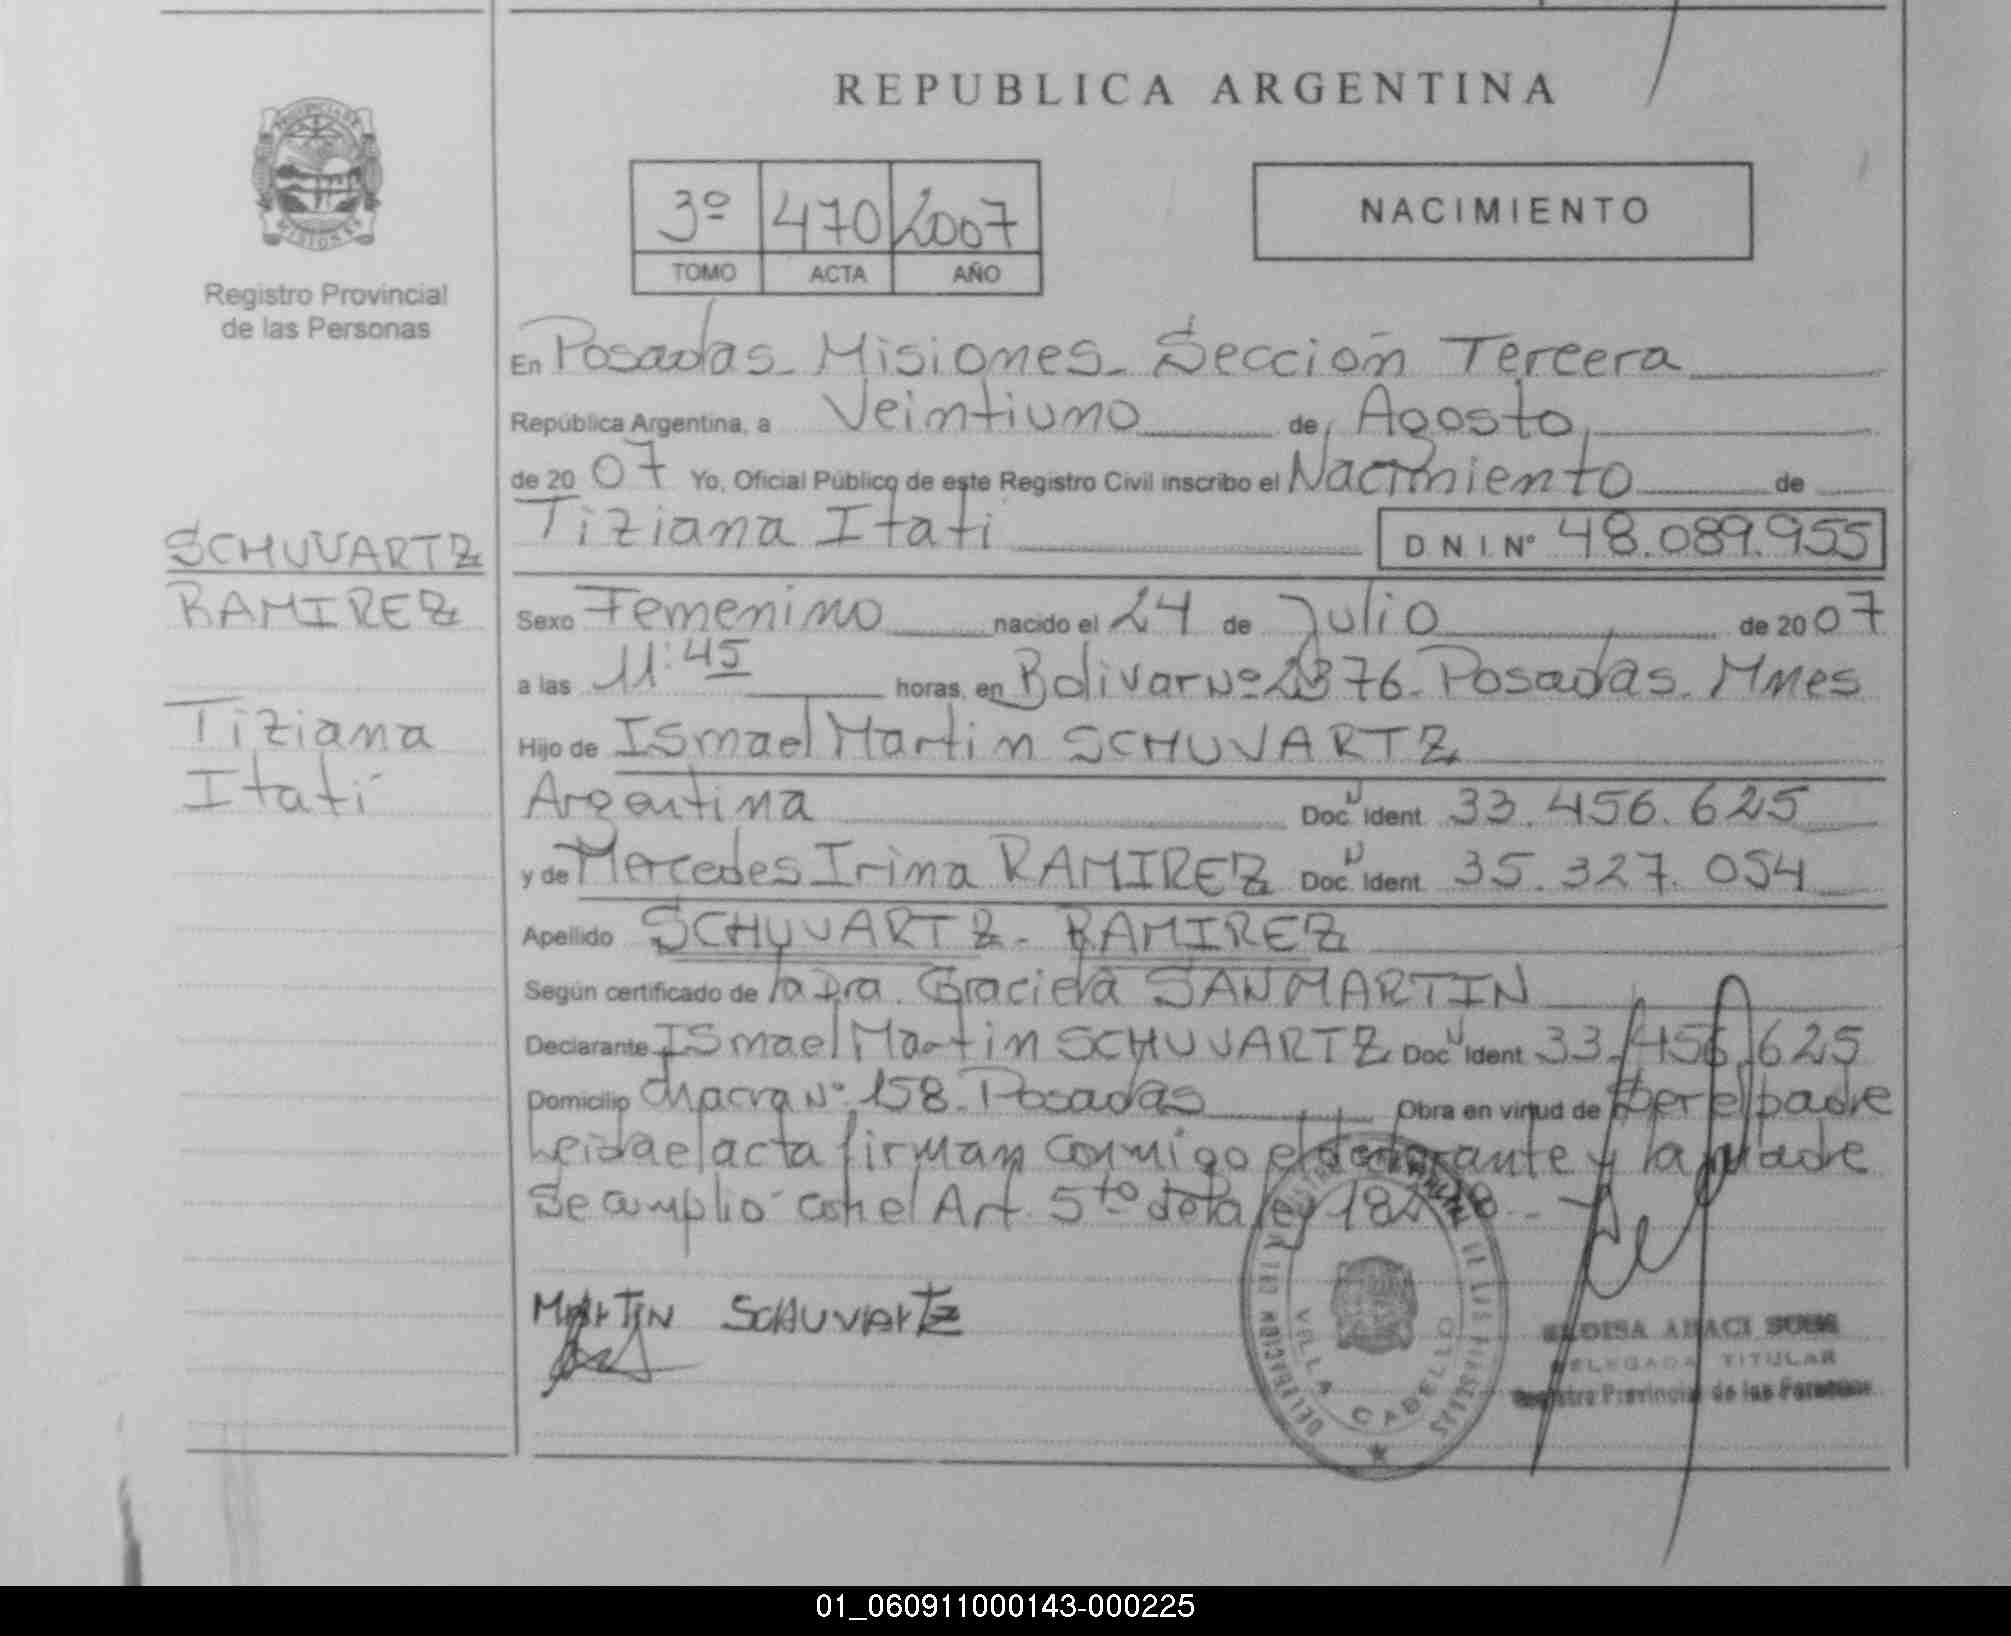 REPUBLICA ARGENTINA
PROVINCIA DE
MISIONES
Registro Provincial
de las Personas
3º 470 2007
TOMO ACTA AÑO
NACIMIENTO
En Posadas - Misiones - Sección Tercera
República Argentina, a Veintiuno de Agosto
de 2007 Yo, Oficial Público de este Registro Civil inscribo el Nacimiento de
Tiziana Itati D N I Nº 48.089.955
SCHUVARTZ
RAMIREZ
Tiziana
Itatí
Sexo Femenino nacido el 24 de Julio de 2007
a las 11:45 horas, en Bolivar Nº 2376 - Posadas - Mnes
Hijo de Ismael Martin SCHUVARTZ
Argentina Doc Ident 33.456.625
y de Mercedes Irina RAMIREZ Doc Ident 35.327.054
Apellido SCHUVARTZ - RAMIREZ
Según certificado de la Dra. Graciela SANMARTIN
Declarante Ismael Martin SCHUVARTZ Doc Ident 33.456.625
Domicilio Chacra Nº 158 - Posadas Obra en virtud de ser el padre
Leida el acta firman conmigo el declarante y la madre
Se cumplio con el Art. 5to de la ley
MARTIN SCHUVARTZ
VILLA CABELLO
DELEGADA TITULAR
Registro Provincial de las Personas
01_060911000143-000225